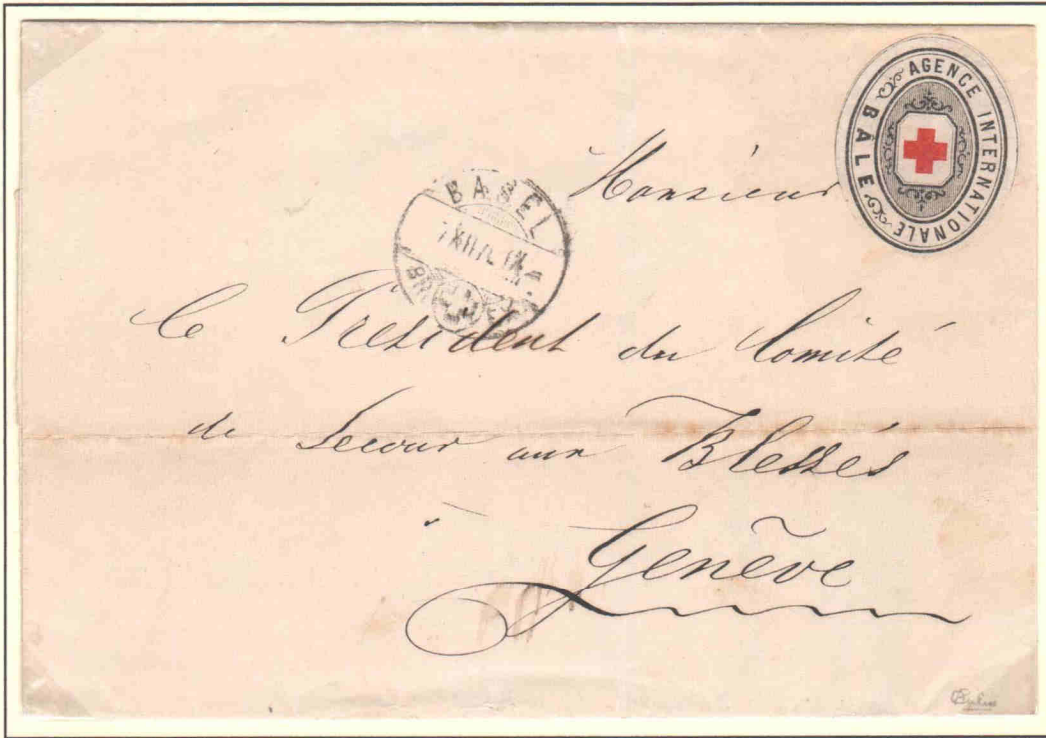 AGENCE INTERNATIONALE
BÂLE
BASEL
Monsieur
le President du Comité
de Secour aux Blessés
Genève